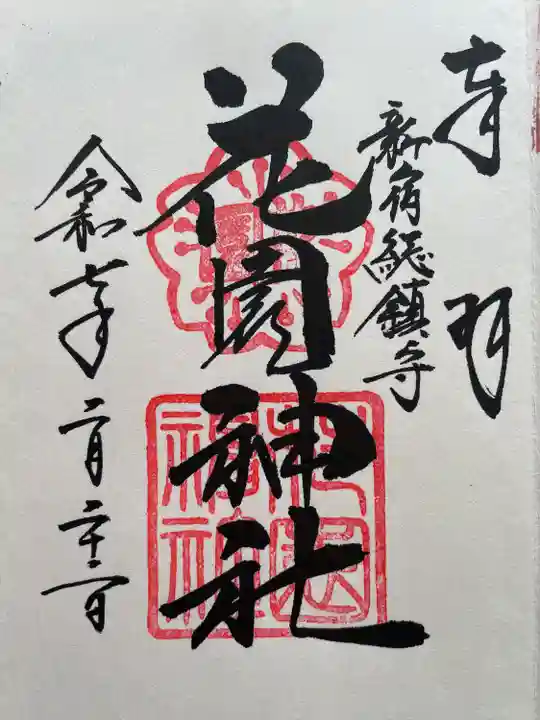 奉拝
新宿総鎮守
花園神社
令和七年二月二十二日
花園
神社